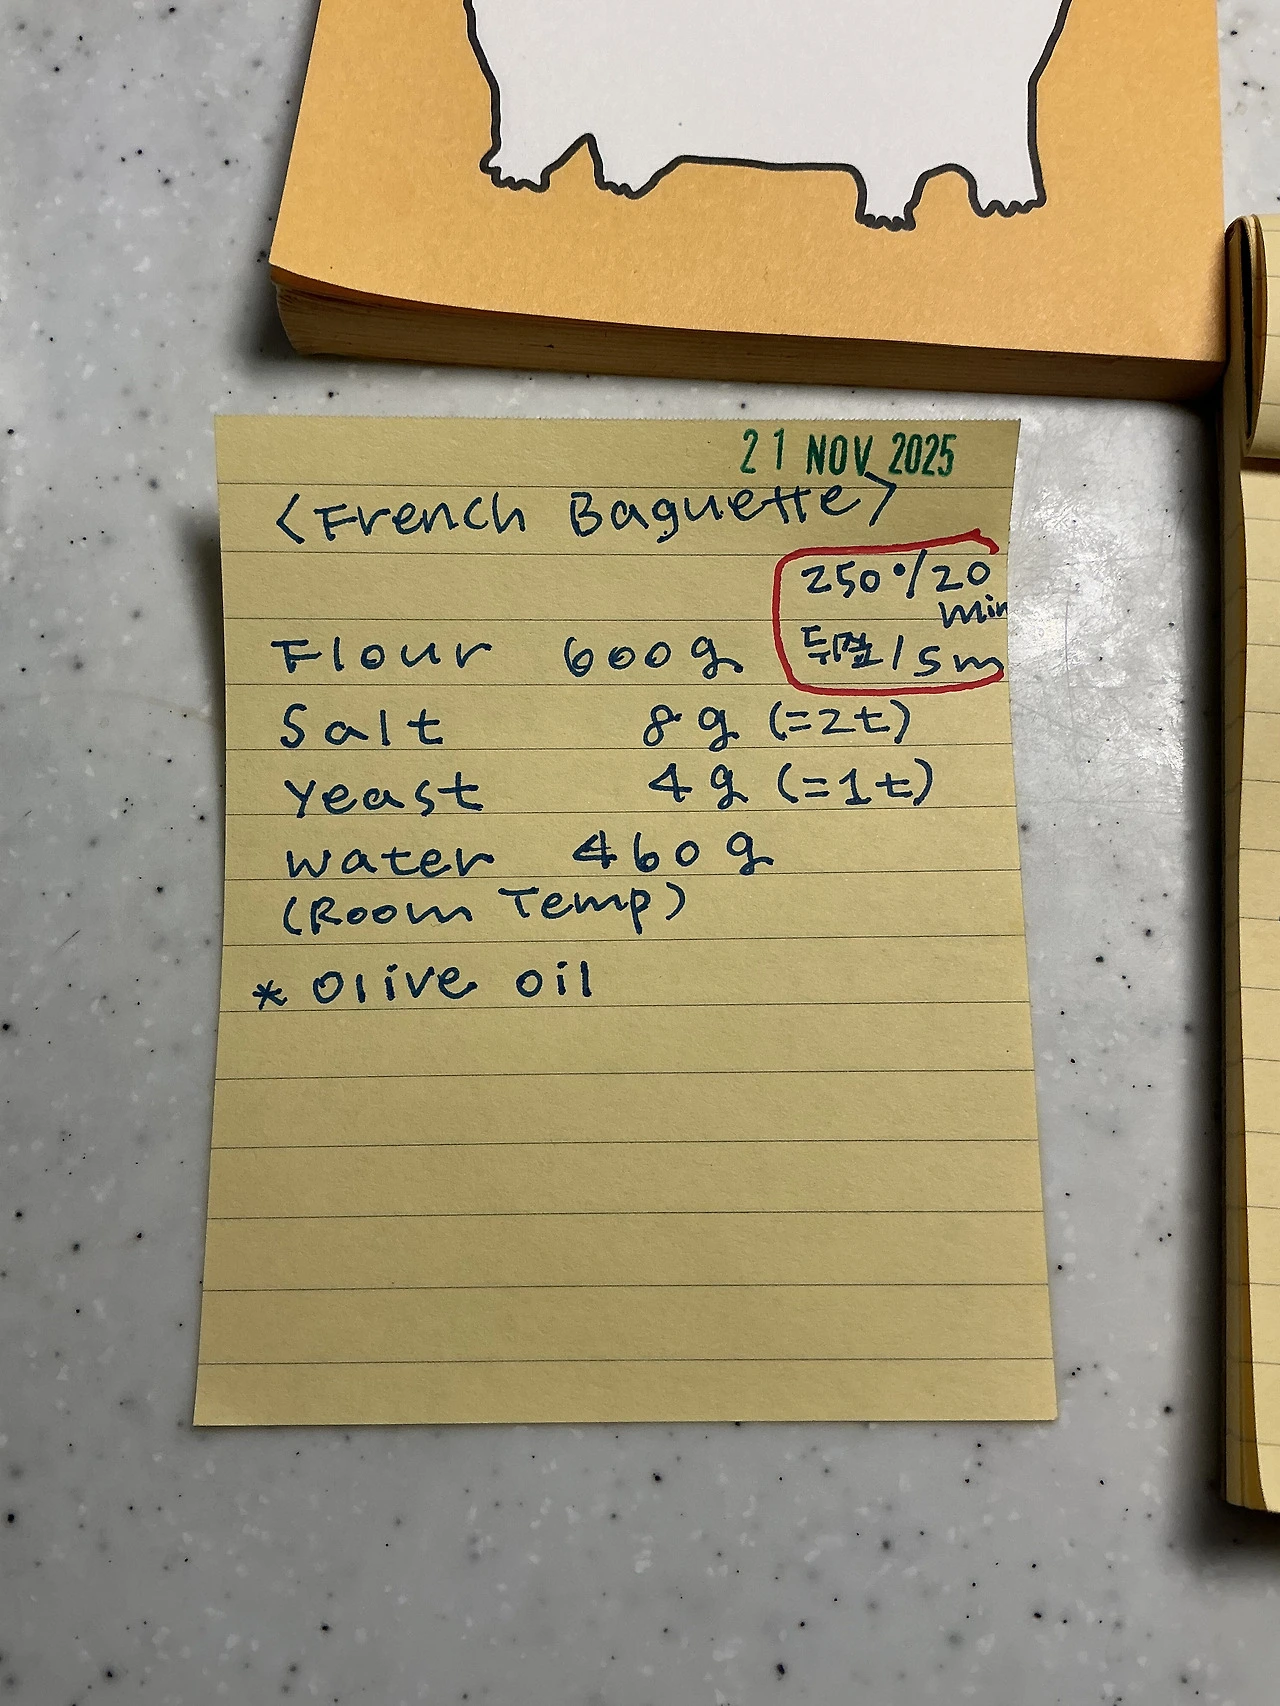 21 NOV 2025
<French Baguette>
250°/20
min
뒤집/5m
Flour 600g
Salt 8g (=2t)
Yeast 4g (=1t)
Water 460g
(Room Temp)
* Olive oil